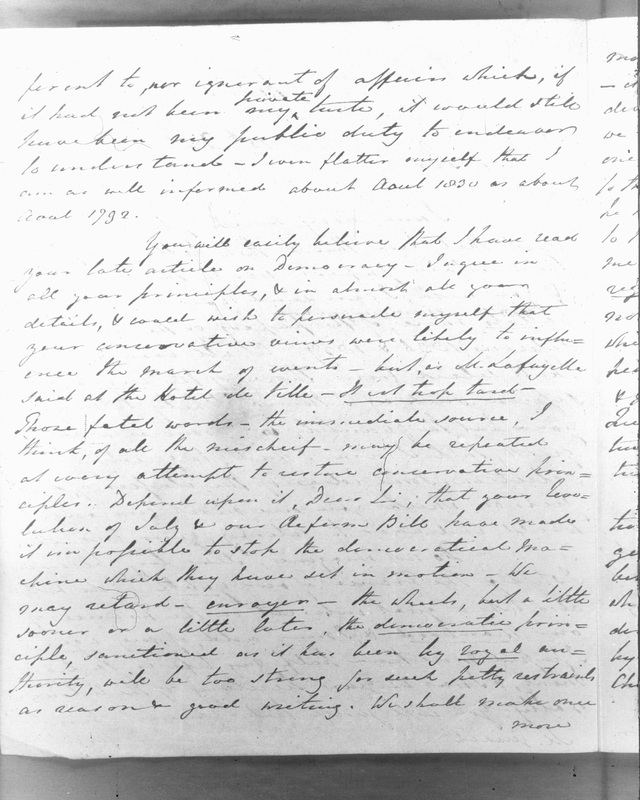 ferent to, nor ignorant of affairs which, if
it had not been my private taste, it would still
have been my public duty to endeavor
to understand – I even flatter myself that I
am as well informed about Aout 1830 as about
Aout 1792.
You will easily believe that I have read
your late article on Democracy – I agree in
all your principles, & in almost all your
details, & would wish to persuade myself that
your conservative views were likely to influ=
ence the march of events – but, as M. Lafayette
said at the Hotel de Ville – Il est trop tard –
Those fatal words – the immediate source, I
think, of all the mischief – may be repeated
at every attempt to restore conservative prin=
ciples. Depend upon it, Dear Sir, that your Revo=
lution of July & our Reform Bill have made
it impossible to stop the democratical ma=
chine which they have set in motion – We
may retard – enrayer – the wheels, but a little
sooner or a little later, the democratic prin=
ciple, sanctioned as it has been by royal au=
thority, will be too strong for such petty restraints
as reason & good writing. We shall make one
more